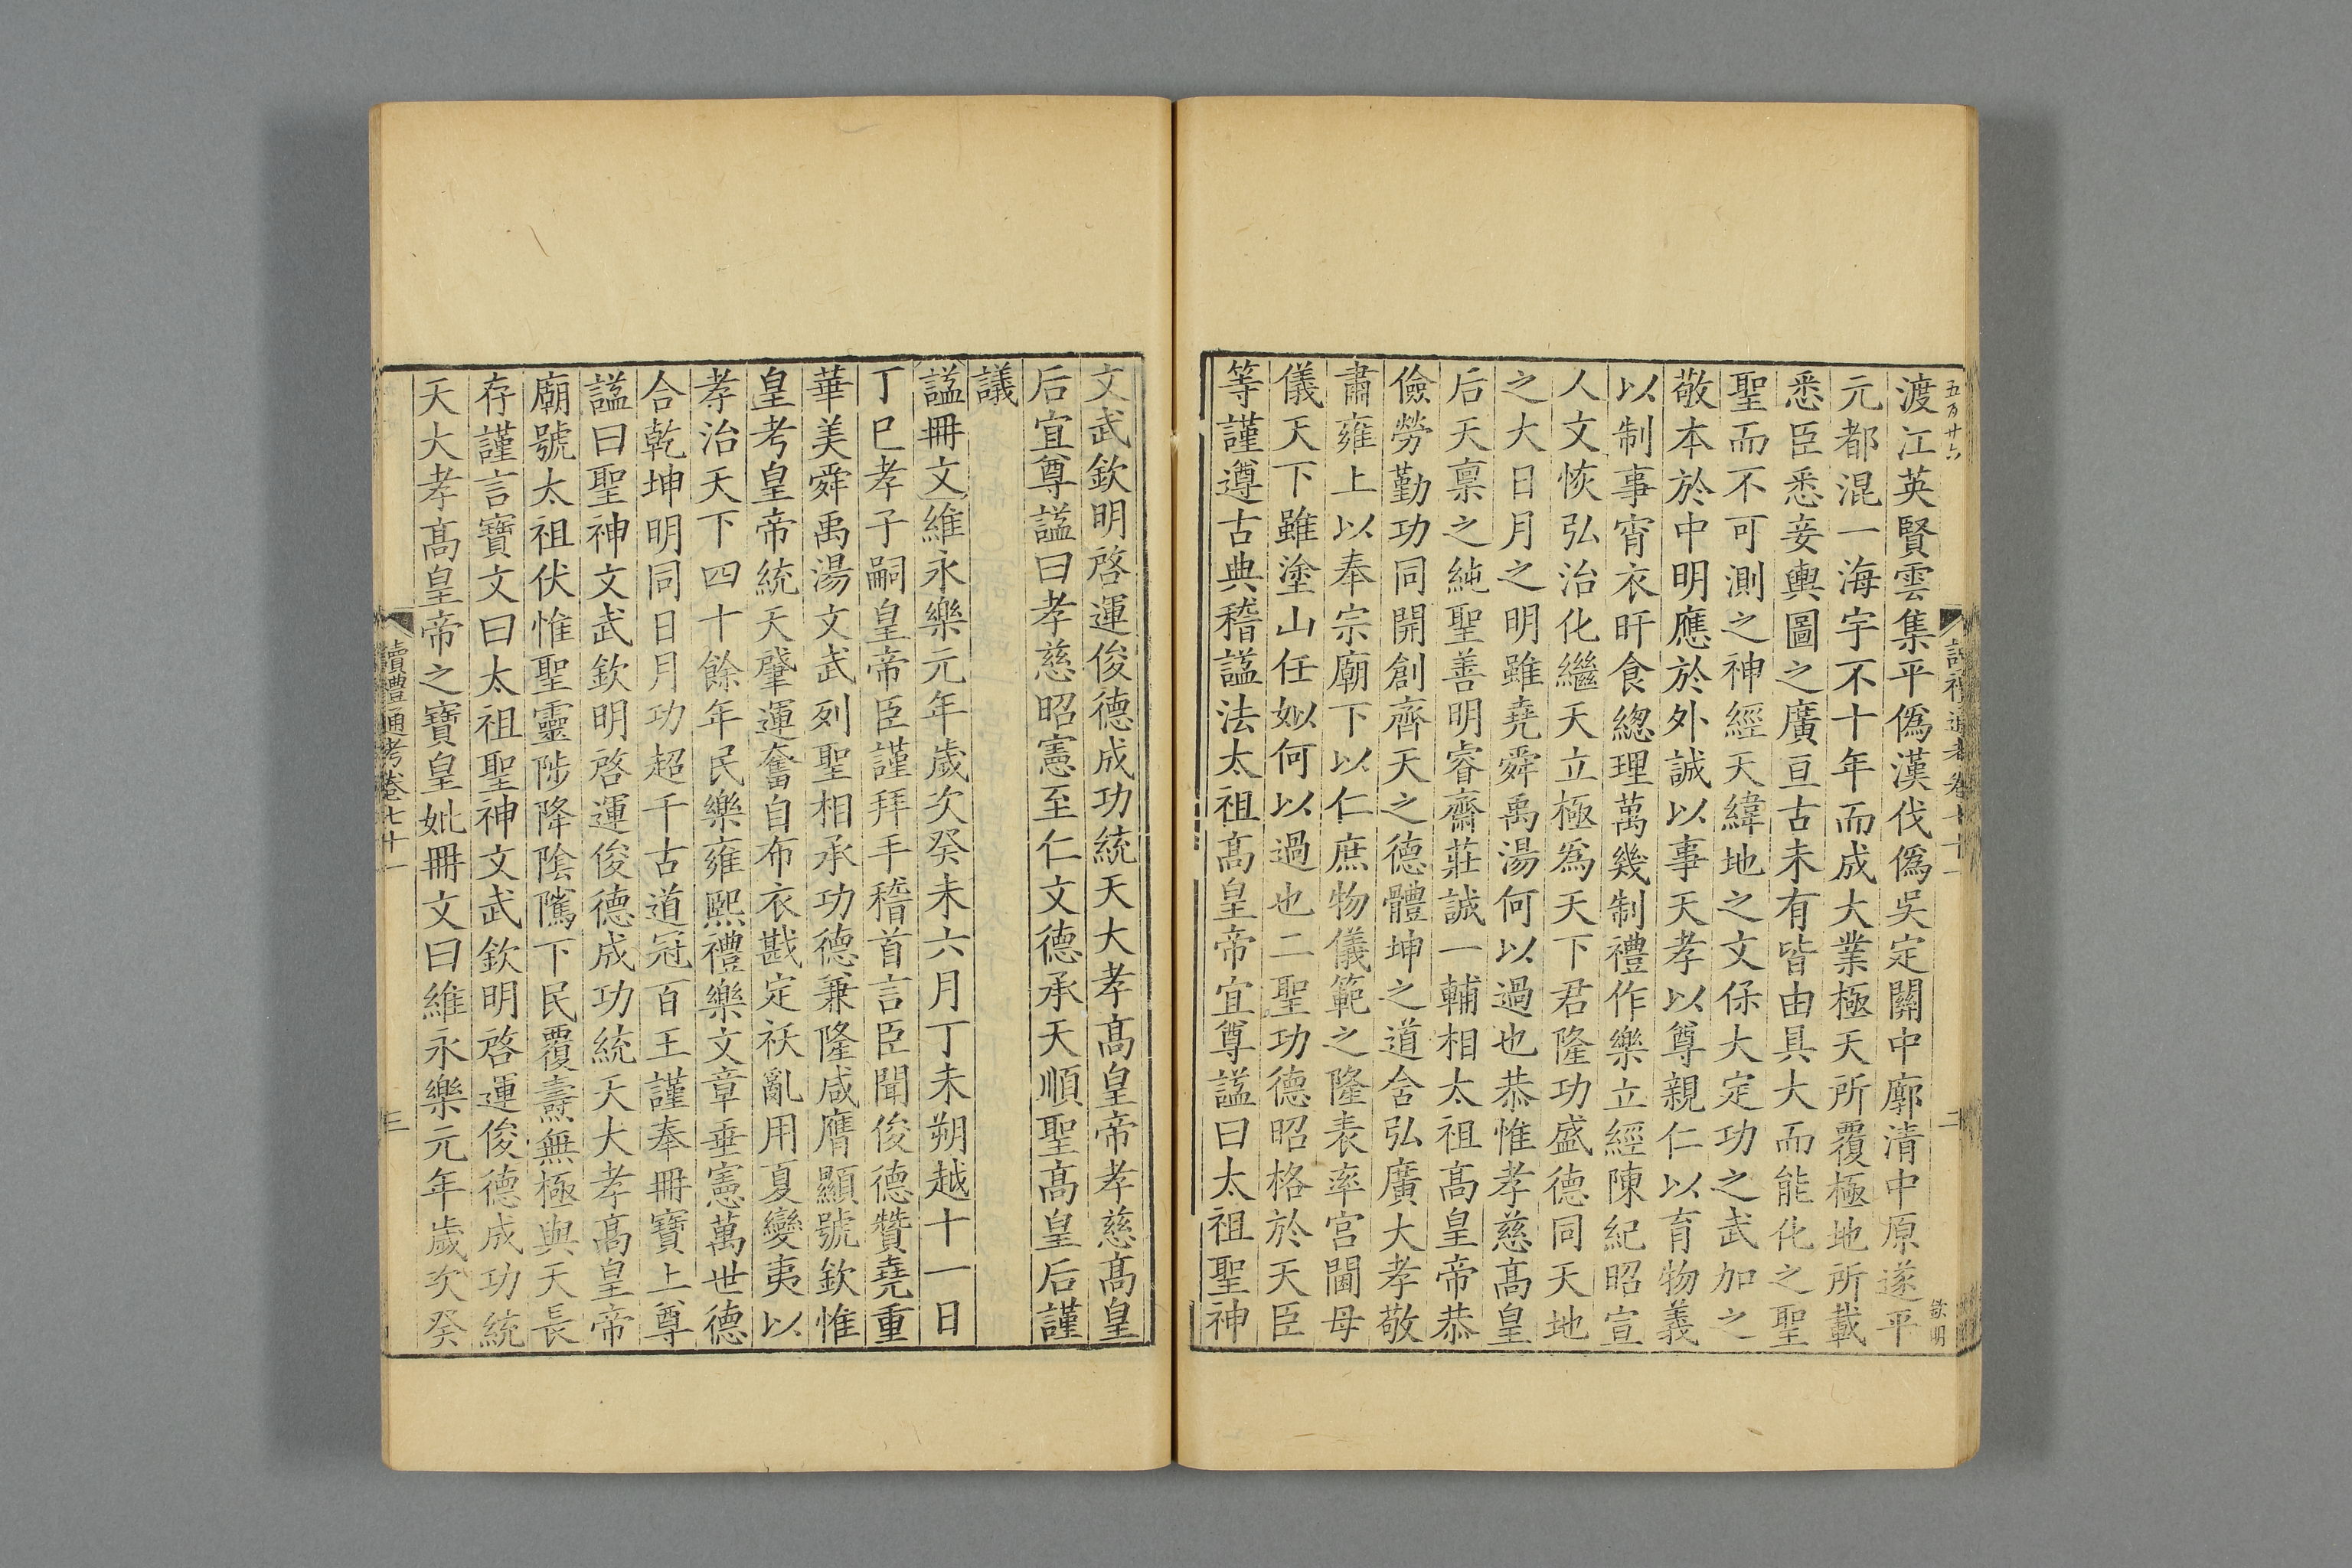 五百廿六
讀禮通考卷七十一
二
欽明
渡江英賢雲集平偽漢伐偽吳定關中廓清中原遂平
元都混一海宇不十年而成大業極天所覆極地所載
悉臣悉妾輿圖之廣亘古未有皆由具大而能化之聖
聖而不可測之神經天緯地之文保大定功之武加之
敬本於中明應於外誠以事天孝以尊親仁以育物義
以制事宵衣旰食緫理萬幾制禮作樂立經陳紀昭宣
人文恢弘治化繼天立極為天下君隆功盛德同天地
之大日月之明雖堯舜禹湯何以過也恭惟孝慈高皇
后天禀之純聖善明睿齋莊誠一輔相太祖高皇帝恭
儉勞勤功同開創齊天之德體坤之道含弘廣大孝敬
肅雍上以奉宗廟下以仁庶物儀範之隆表率宮闈母
儀天下雖塗山任姒何以過也二聖功德昭格於天臣
等謹遵古典稽諡法太祖高皇帝宜尊諡曰太祖聖神
文武欽明啓運俊德成功統天大孝高皇帝孝慈高皇
后宜尊諡曰孝慈昭憲至仁文德承天順聖高皇后謹
議
諡冊文維永樂元年歲次癸未六月丁未朔越十一日
丁巳孝子嗣皇帝臣謹拜手稽首言臣聞俊德贊堯重
華美舜禹湯文武列聖相承功德兼隆咸膺顯號欽惟
皇考皇帝統天肇運奮自布衣戡定祅亂用夏變夷以
孝治天下四十餘年民樂雍熙禮樂文章垂憲萬世德
合乾坤明同日月功超千古道冠百王謹奉冊寶上尊
諡曰聖神文武欽明啓運俊德成功統天大孝高皇帝
廟號太祖伏惟聖靈陟降隂隲下民覆燾無極與天長
存謹言寶文曰太祖聖神文武欽明啓運俊德成功統
天大孝高皇帝之寶皇妣冊文曰維永樂元年歲次癸
讀禮通考卷七十一
三